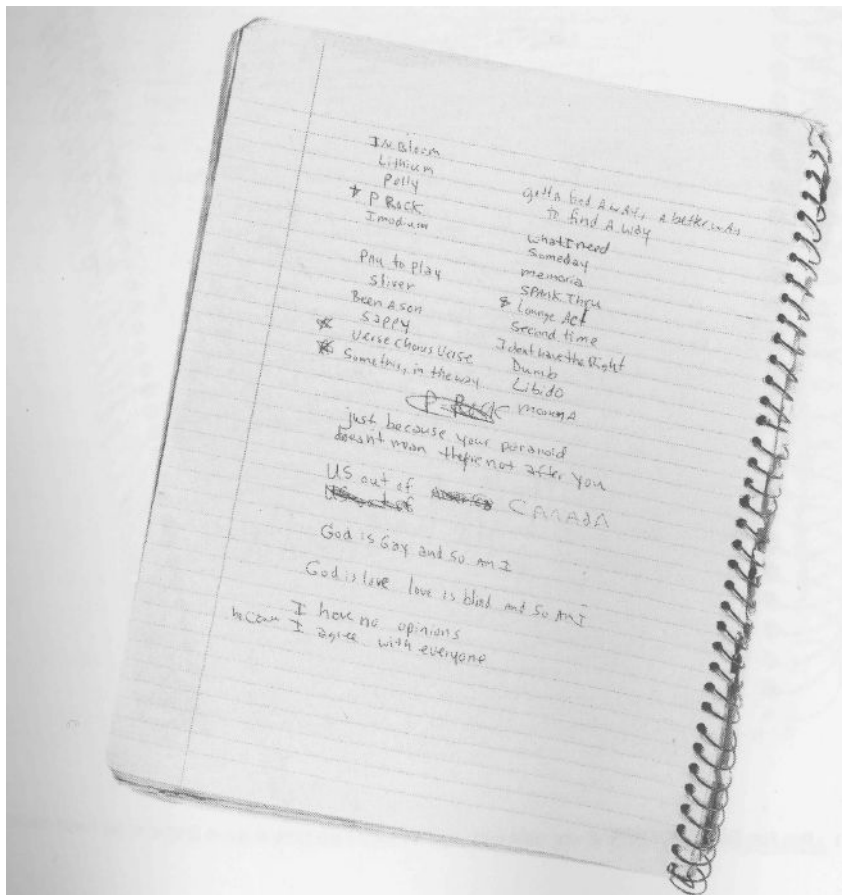 In Bloom
Lithium
Polly
* P Rock
Imodium
Pay to Play
Sliver
Been A Son
Sappy
* Verse Chorus Verse
* Something in the way
gotta find A way, a better way
to find A way
What I need
Someday
memoria
Spank Thru
& Lounge Act
Second time
I dont have the Right
Dumb
Libido
P Rock
just because your paranoid
doesnt mean theyre not after you
US out of America CANADA
US out of
God is Gay and so Am I
God is love love is blind and so Am I
I have no opinions
because I agree with everyone